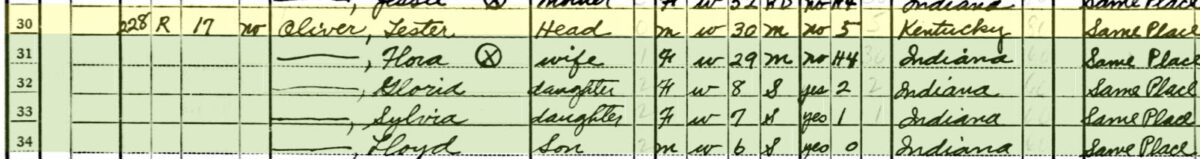 Jessie mother F w 52 Indiana Same Place
30 228 R 17 no Oliver, Lester Head m w 30 m no 5 Kentucky Same Place
31 ———, Flora ⊗ wife F w 29 m no H4 Indiana Same Place
32 ———, Gloria daughter F w 8 S yes 2 Indiana Same Place
33 ———, Sylvia daughter F w 7 S yes 1 Indiana Same Place
34 ———, Floyd Son m w 6 S yes 0 Indiana Same Place